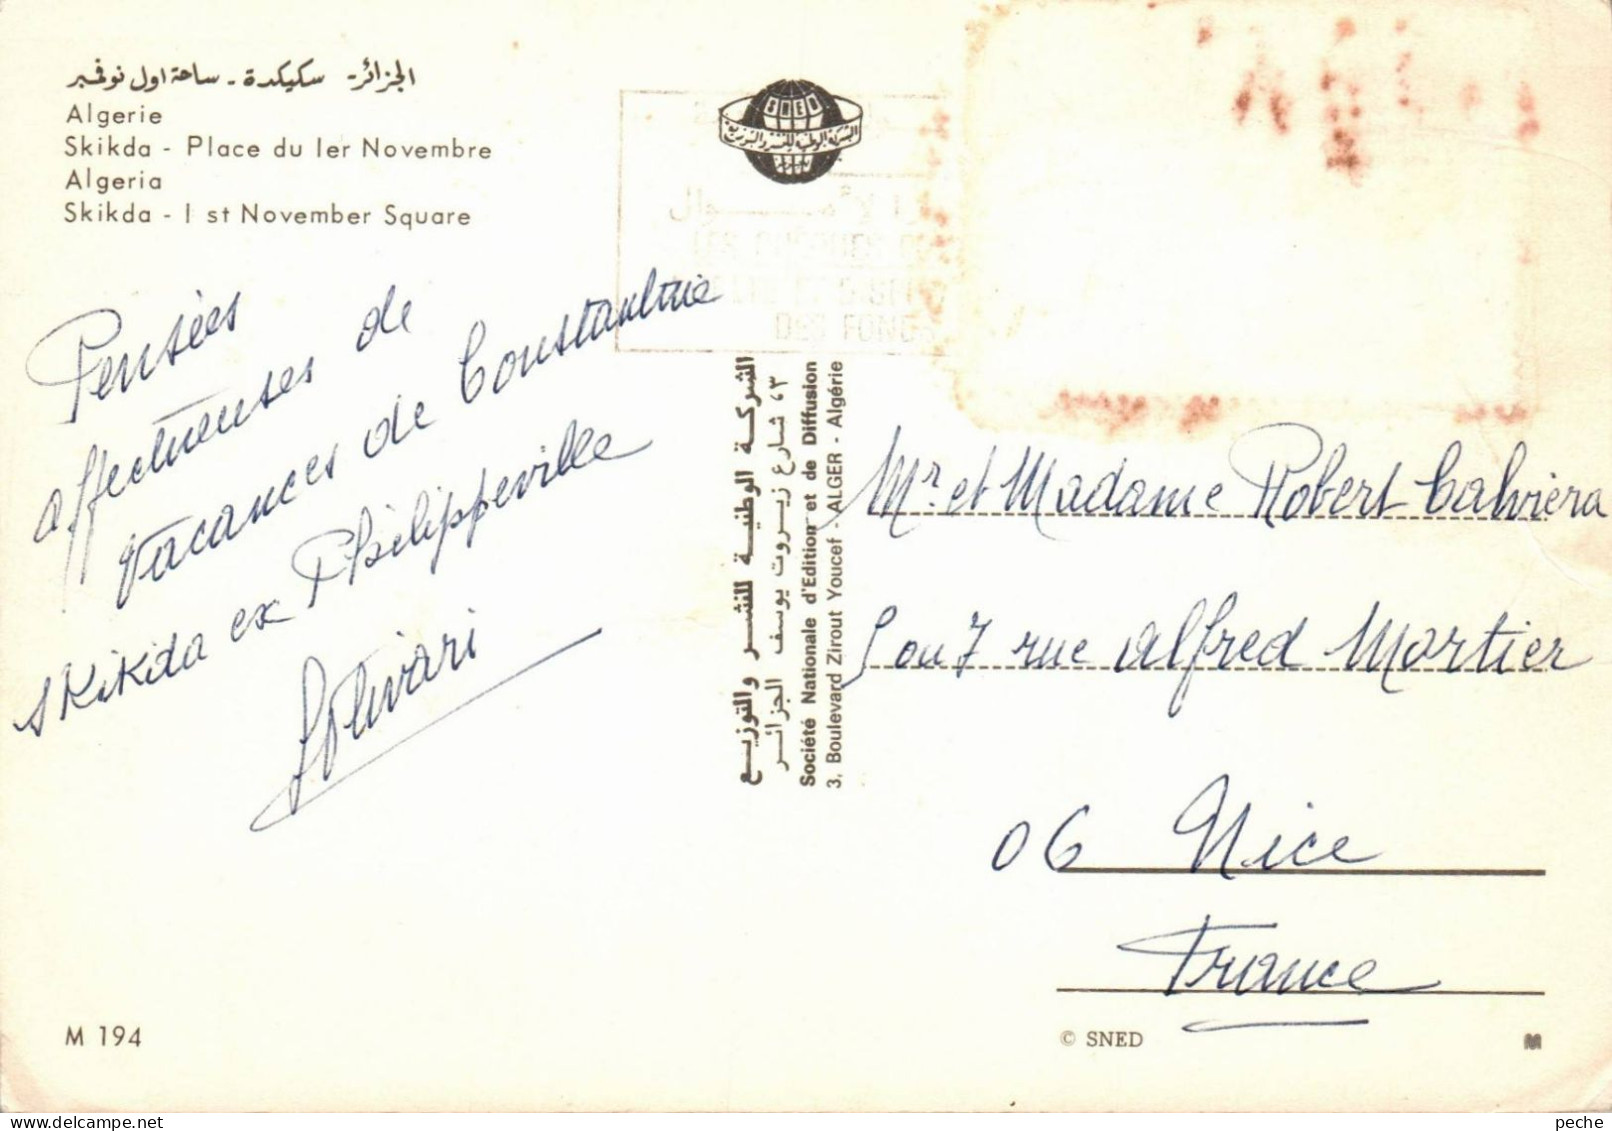 الجزائر - سكيكدة - ساحة اول نوفمبر
Algerie
Skikda - Place du Ier Novembre
Algeria
Skikda - I st November Square
SNED
الشركة الوطنية للنشر والتوزيع
LES CHEQUES
DES FONDS
Pensées
affectueuses de
vacances de Constantine
SKiKida ex Philippeville
الشركة الوطنية للنشر والتوزيع
٣، شارع زيروت يوسف الجزائر
Société Nationale d'Edition et de Diffusion
3, Boulevard Zirout Youcef - ALGER - Algérie
Mr et Madame Robert Calviera
5 ou 7 rue Alfred Mortier
06 Nice
France
M 194
© SNED
M
peche